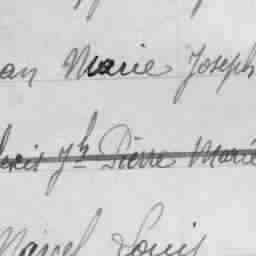 an Marie Joseph
Jh Pierre Marie
Marcel Louis